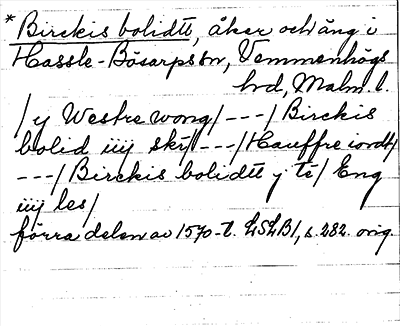 * Birckis bolidtt, åker och äng i
Hassle-Bösarps sn, Vemmenhögs
hd, Malm. l.
/y Westre wong/---/Birckis
bolid iiij skr/---/Hauffre iordt/
---/Birckis bolidtt j té/Eng
iiij les/
förra delen av 1570-t. LSLB1, s. 282. orig.